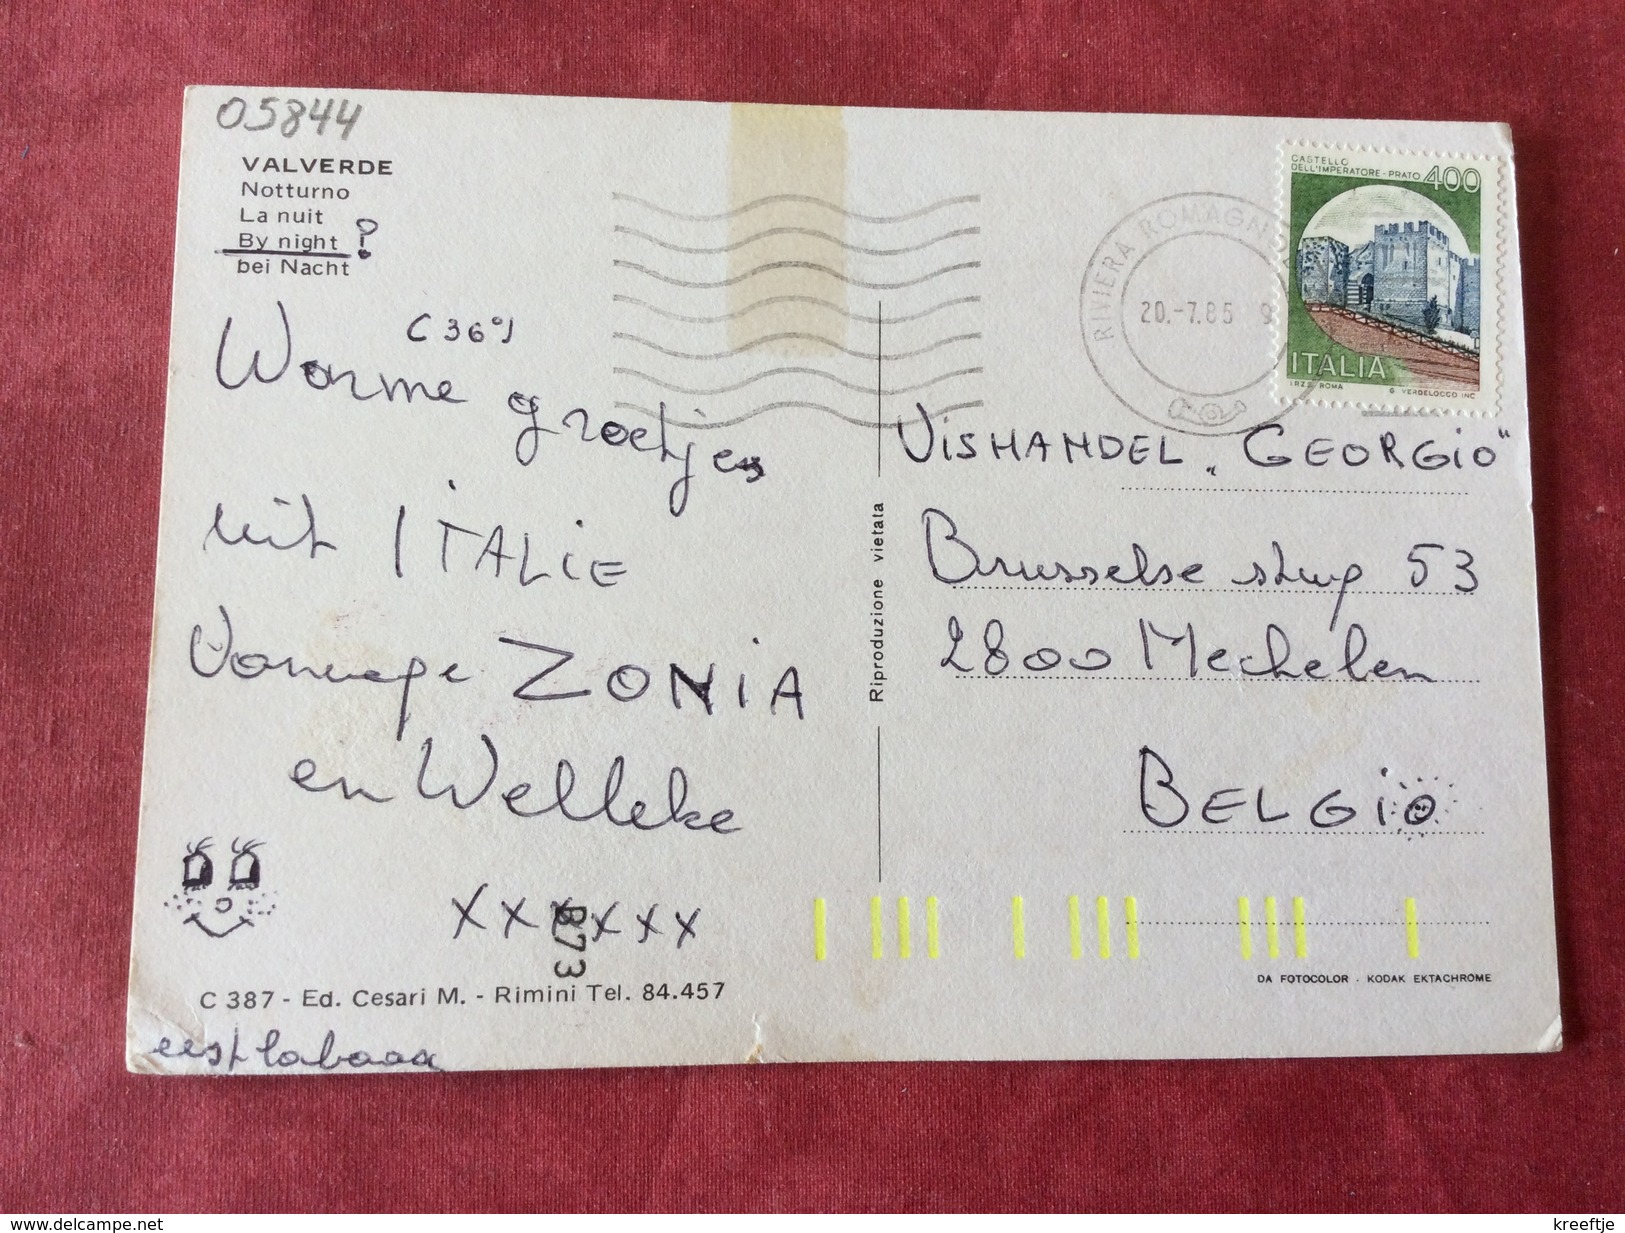 05844
VALVERDE
Notturno
La nuit
By night ?
bei Nacht
(36°)
Warme groetjes
uit ITALIE
Vanwege ZONIA
en Welleke
XXXXXX
B73
C 387 - Ed. Cesari M. - Rimini Tel. 84.457
Riproduzione vietata
RIVIERA ROMAGNO
20.-7.85 9
CASTELLO
DELL'IMPERATORE - PRATO 400
ITALIA
I.P.Z.S. ROMA G. VERDELOCCO INC.
VISHANDEL „GEORGIO"
Brusselse stwg 53
2800 Mechelen
BELGIO
DA FOTOCOLOR . KODAK EKTACHROME
www.delcampe.net
kreeftje